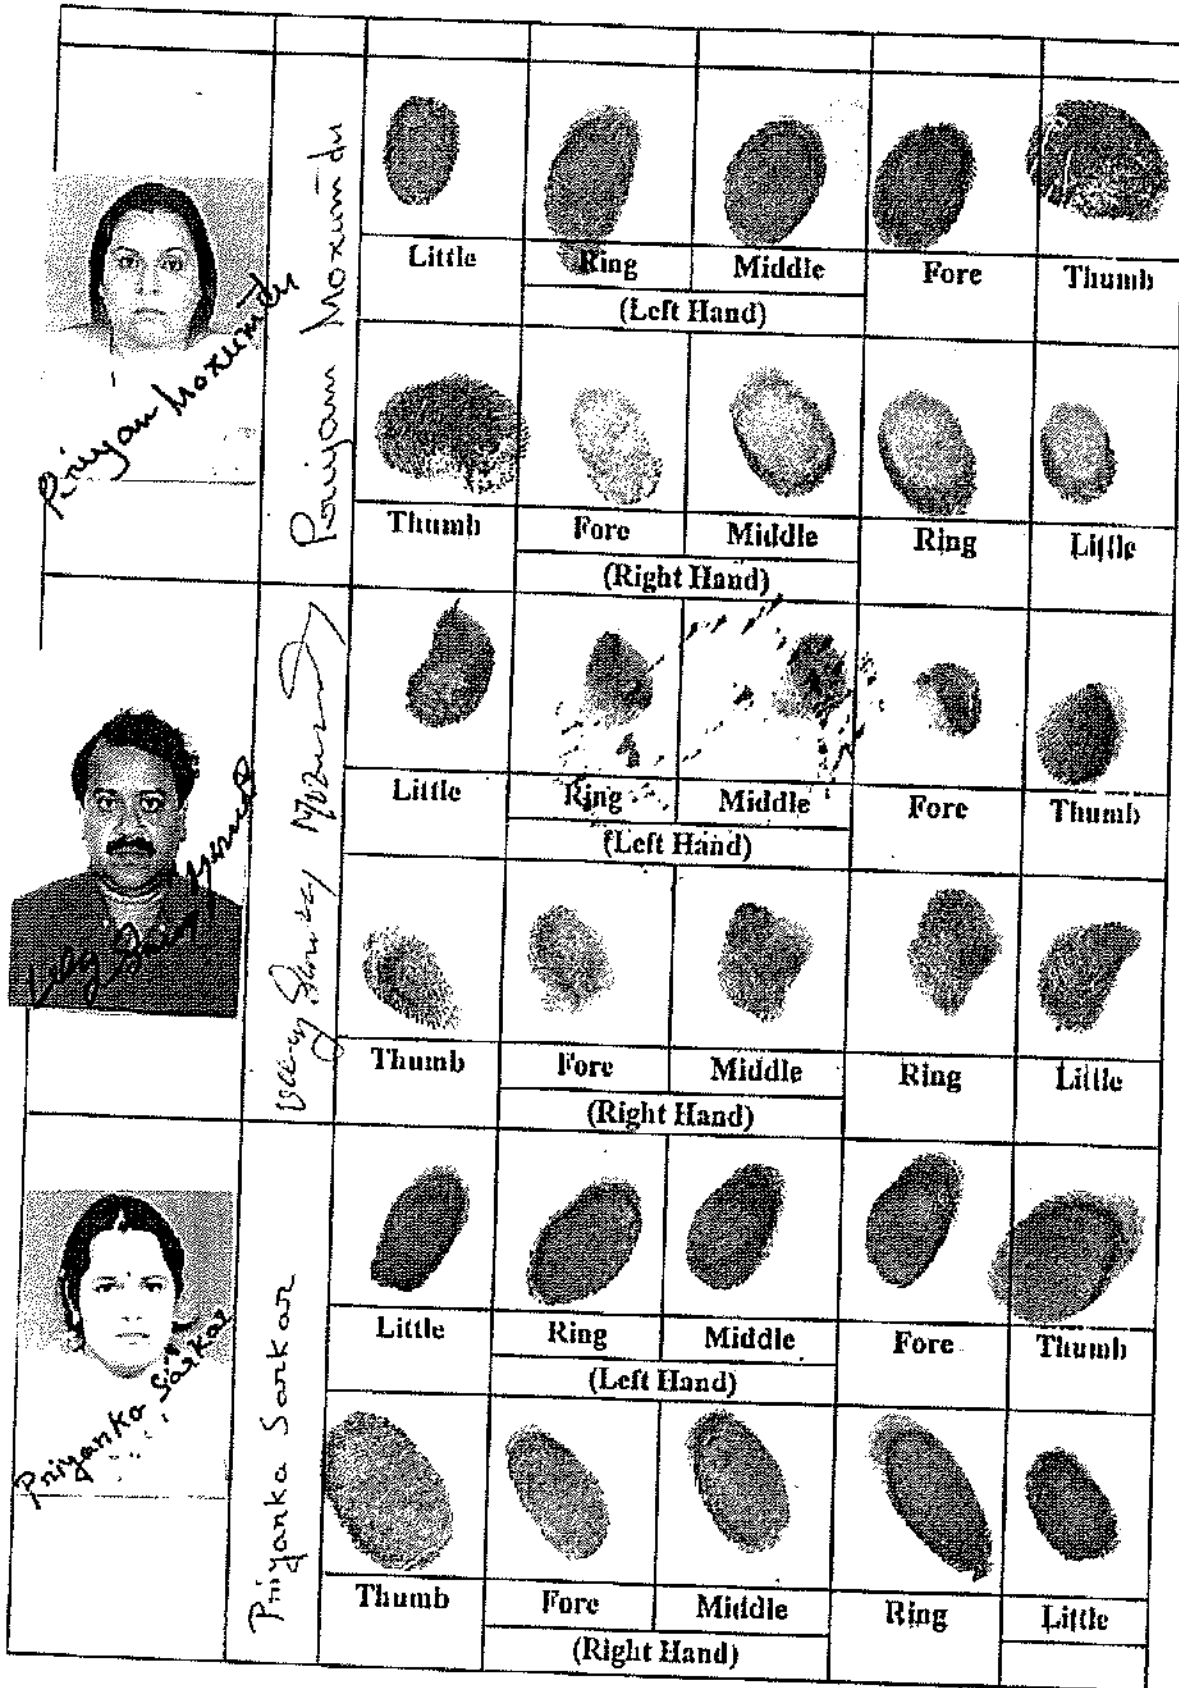 Priyam Mozumder
Priyam Mozumder
Little Ring Middle Fore Thumb
(Left Hand)
Thumb Fore Middle Ring Little
(Right Hand)
Little Ring Middle Fore Thumb
(Left Hand)
Thumb Fore Middle Ring Little
(Right Hand)
Priyanka Sarkar
Priyanka Sarkar
Little Ring Middle Fore Thumb
(Left Hand)
Thumb Fore Middle Ring Little
(Right Hand)